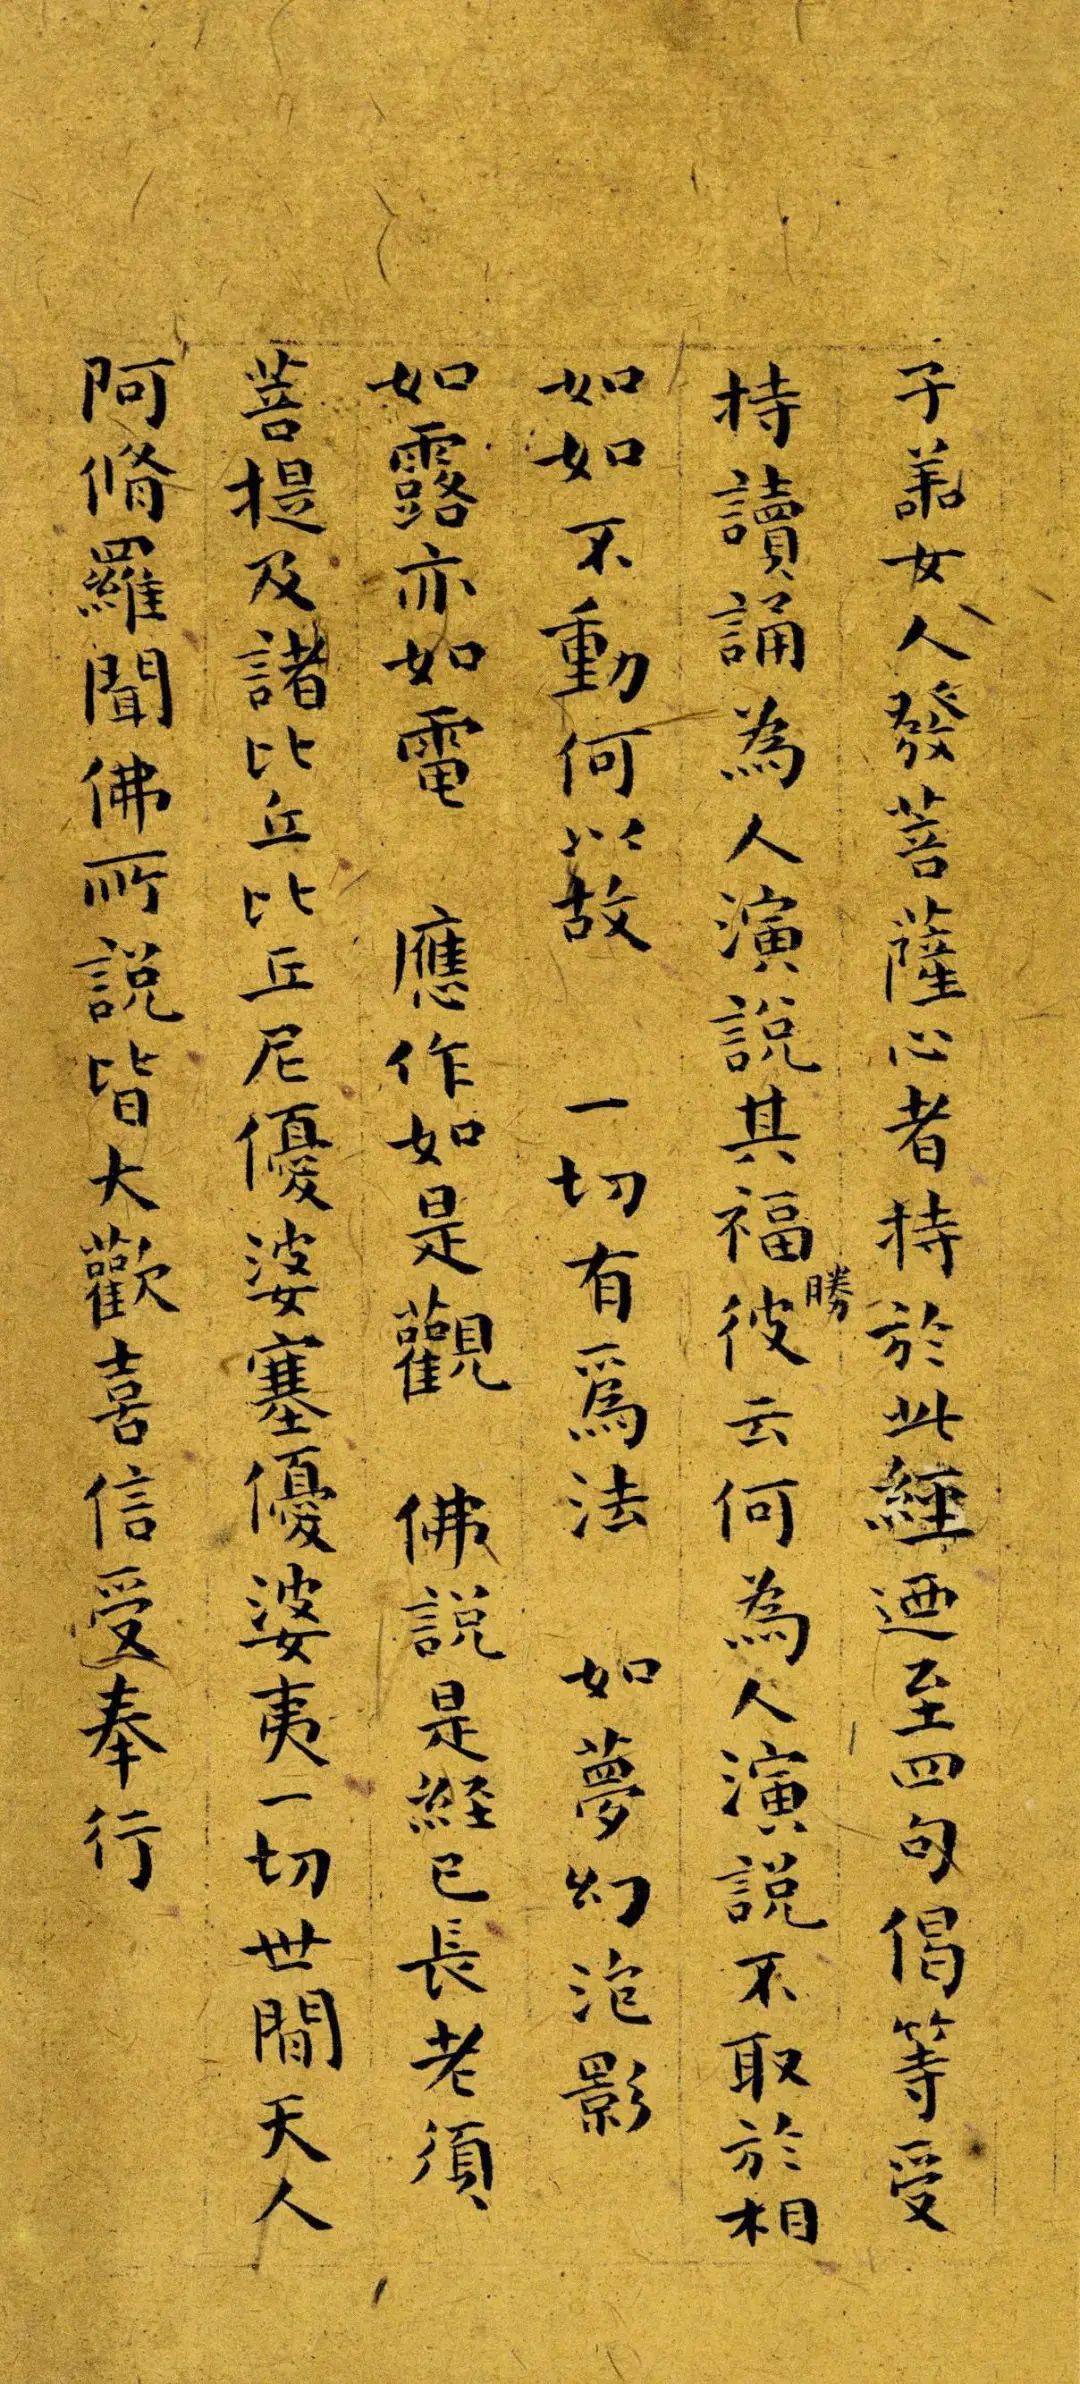 子善女人發菩薩心者持於此經迺至四句偈等受
持讀誦為人演說其福勝彼云何為人演說不取於相
如如不動何以故 一切有爲法 如夢幻泡影
如露亦如電 應作如是觀 佛說是經已長老須
菩提及諸比丘比丘尼優婆塞優婆夷一切世間天人
阿脩羅聞佛所說皆大歡喜信受奉行